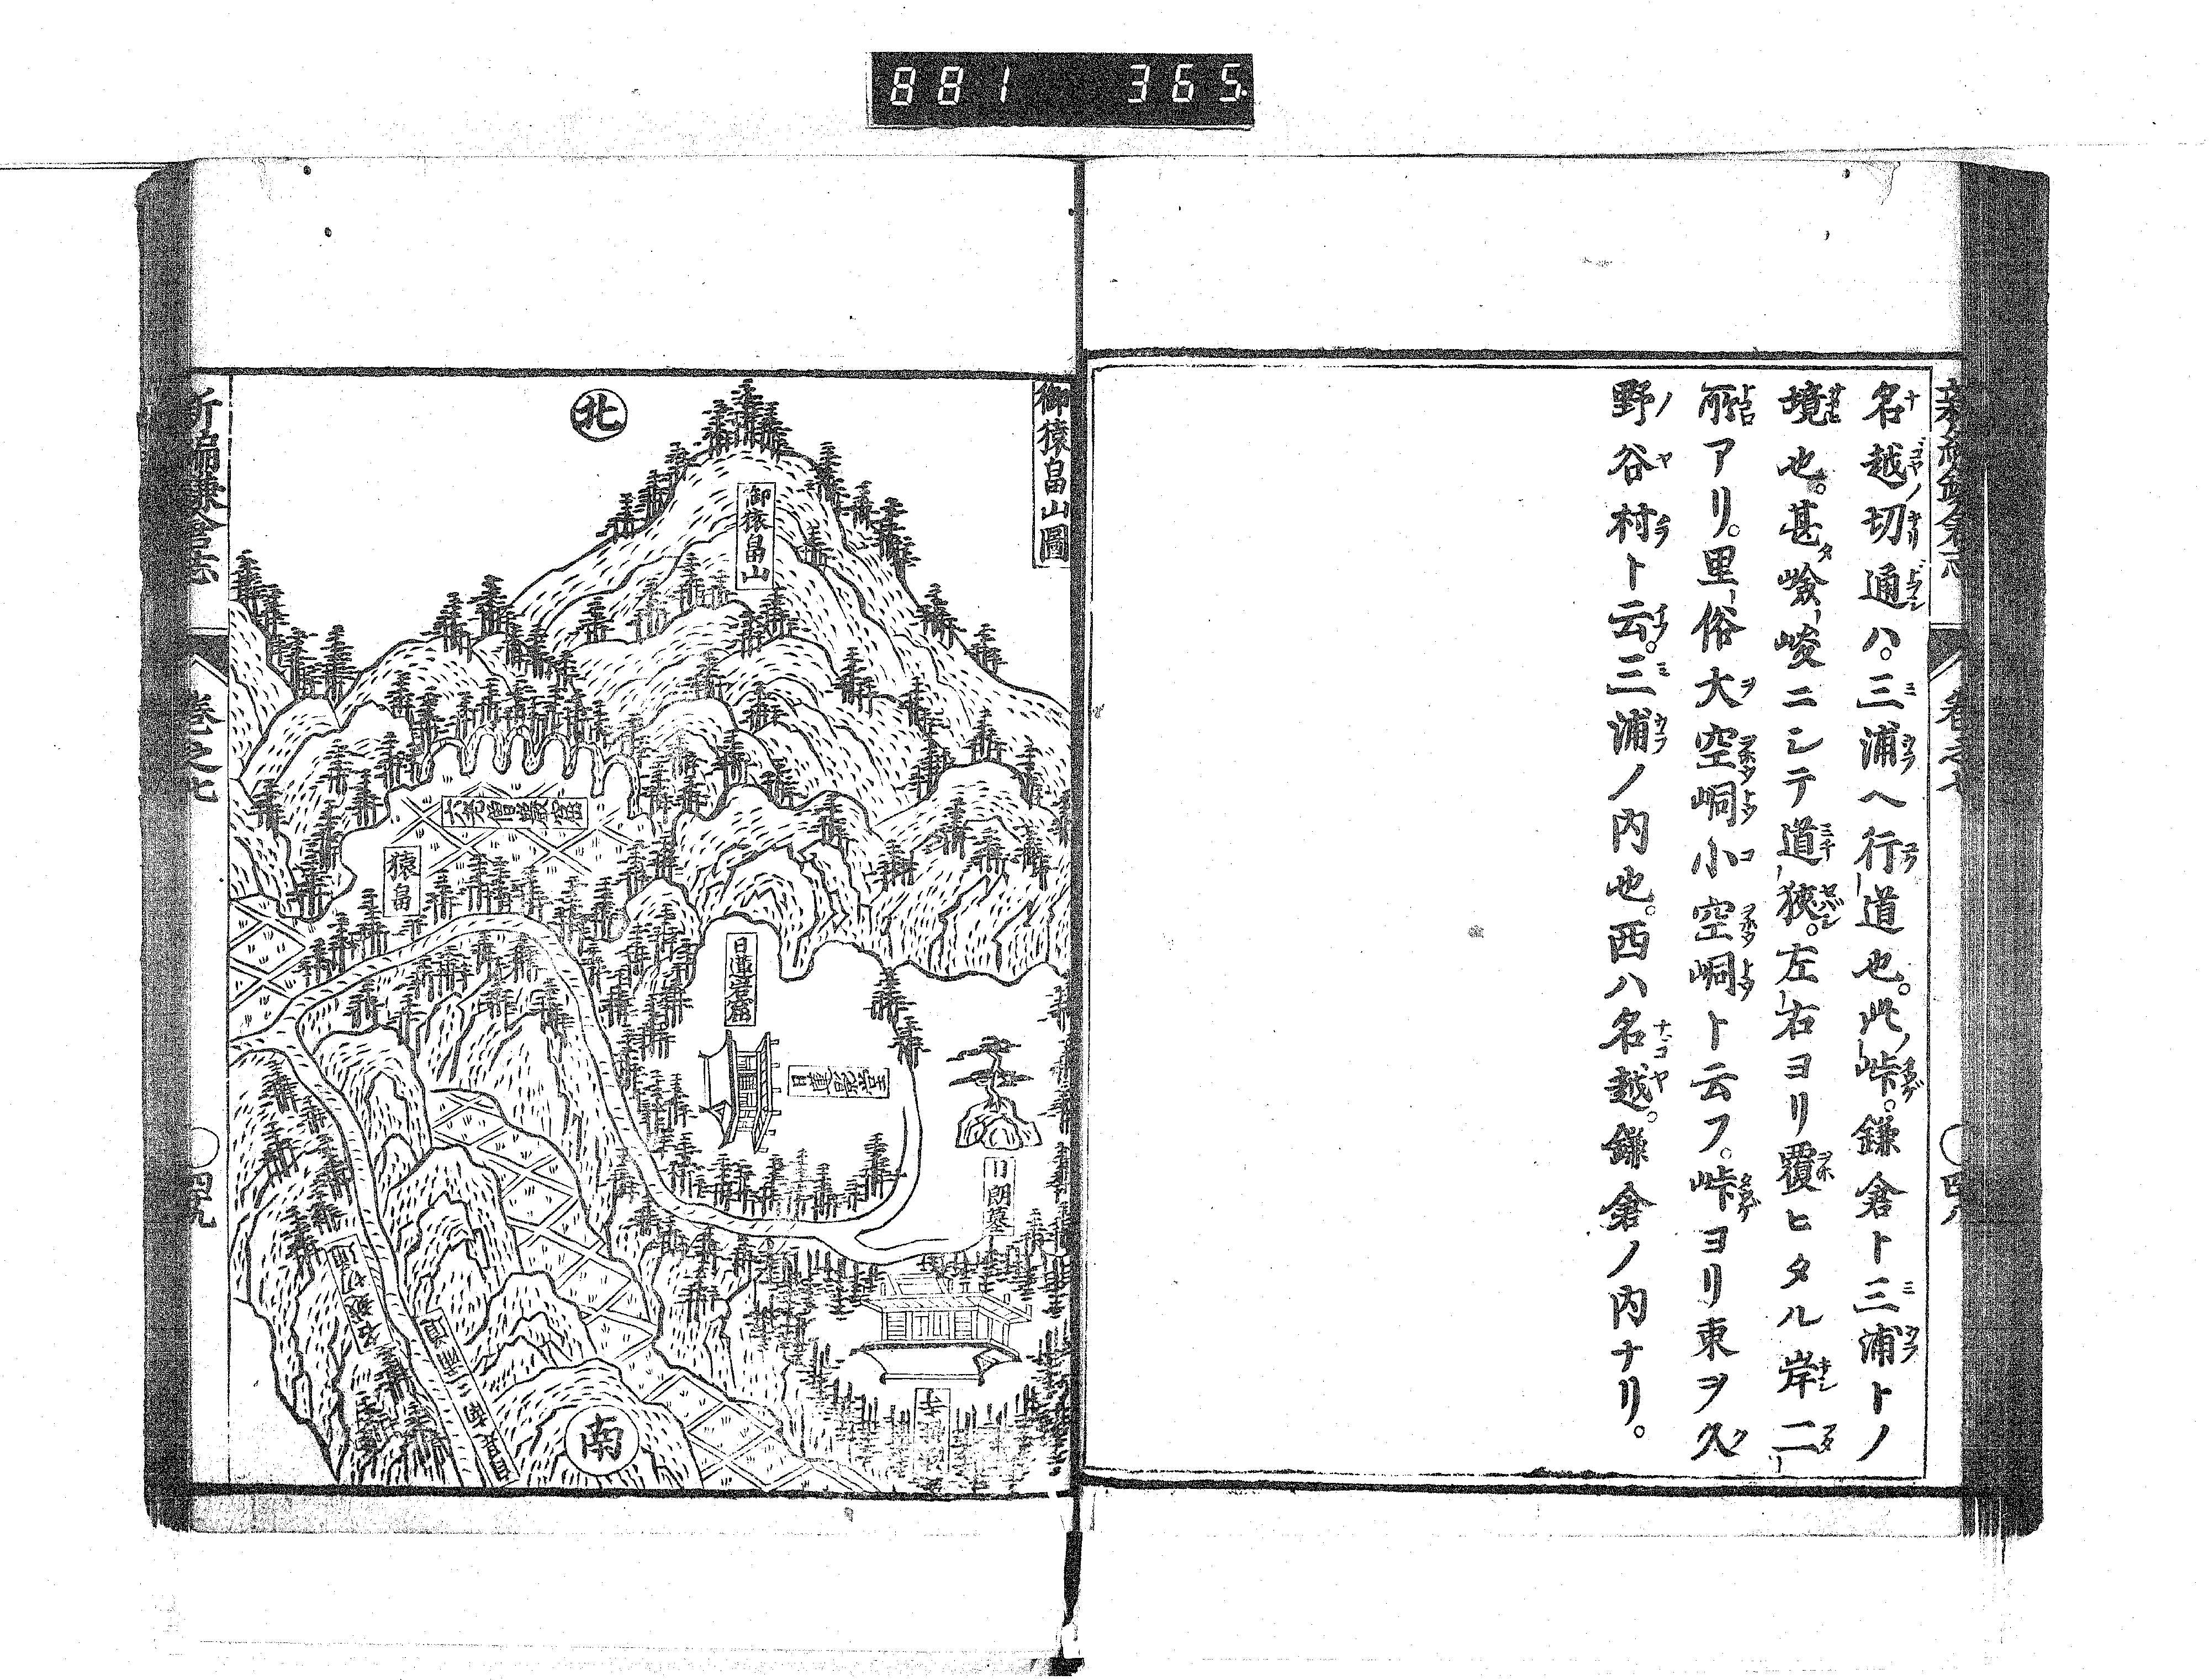 881 365
名越切通ハ。三浦ヘ行道也。此峠。鎌倉ト三浦トノ
境也。甚嶮峻ニシテ道狹。左右ヨリ覆ヒタル岸二
所アリ。里俗大空峒小空峒ト云フ。峠ヨリ東ヲ久
野谷村ト云。三浦ノ内也。西ハ名越。鎌倉ノ内ナリ。
御猿畠山圖
北
御猿畠山
猿畠
日蓮岩窟
日朗墓
名越切通
三浦道
南
新編鎌倉志
卷之七